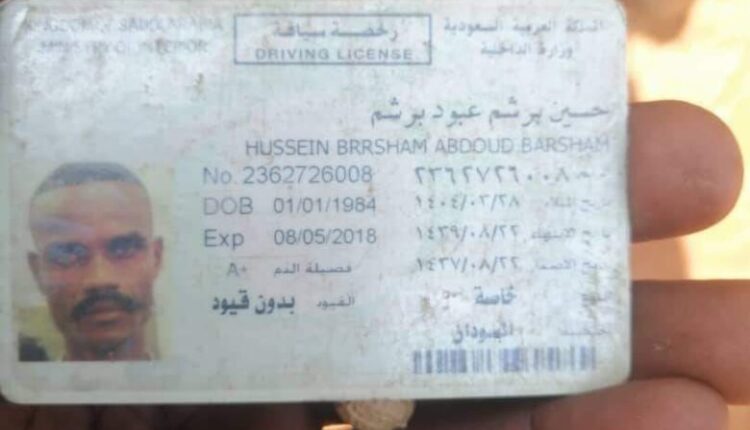 KINGDOM OF SAUDI ARABIA
رخصة سياقة
المملكة العربية السعودية
MINISTRY OF INTERIOR
DRIVING LICENSE
وزارة الداخلية
حسين برشم عبود برشم
HUSSEIN BRRSHAM ABDOUD BARSHAM
No. 2362726008 ٢٣٦٢٧٢٦٠٠٨
DOB 01/01/1984 ١٤٠٤/٠٣/٢٨ تاريخ الميلاد
Exp 08/05/2018 ١٤٣٩/٠٨/٢٢ تاريخ الانتهاء
A+ فصيلة الدم ١٤٣٧/٠٨/٢٢
بدون قيود القيود خاصة
السودان